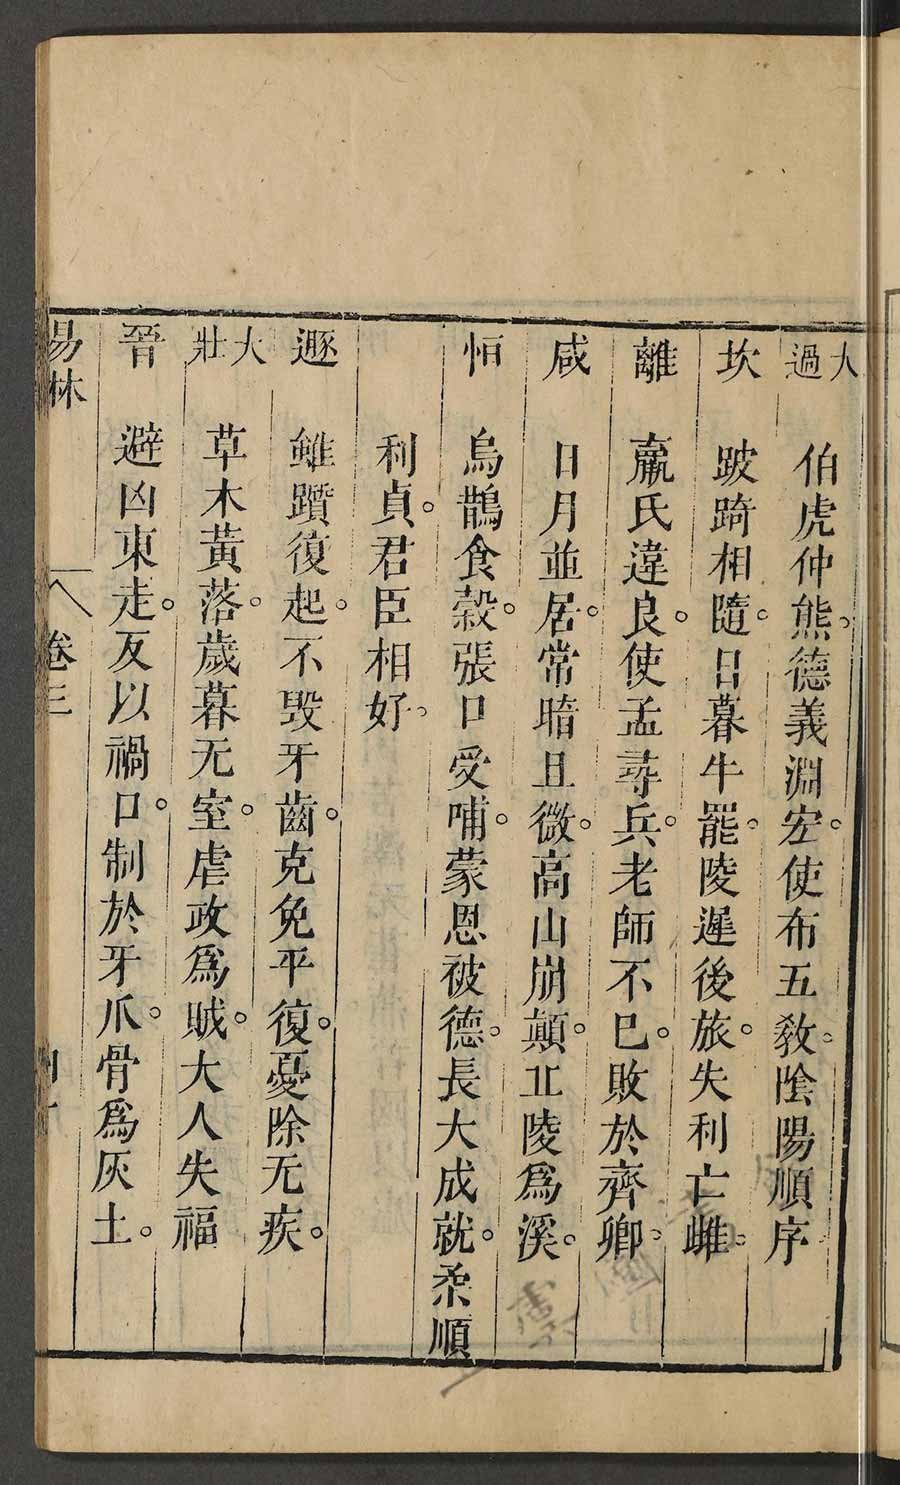 大過 伯虎仲熊。德義淵宏。使布五敎。陰陽順序
坎 跛踦相隨。日暮牛罷。陵遲後旅。失利亡雌。
離 羸氏違良。使孟尋兵。老師不已。敗於齊卿。
咸 日月並居。常暗且微。高山崩顛。丘陵爲溪。
恒 烏鵲食穀。張口受哺。蒙恩被德。長大成就。柔順
利貞。君臣相好。
遯 雖躓復起。不毀牙齒。克免平復。憂除无疾。
大壯 草木黃落。歲暮无室。虐政爲賊。大人失福
晉 避凶東走。反以禍口。制於牙爪。骨爲灰土。
易林 卷三